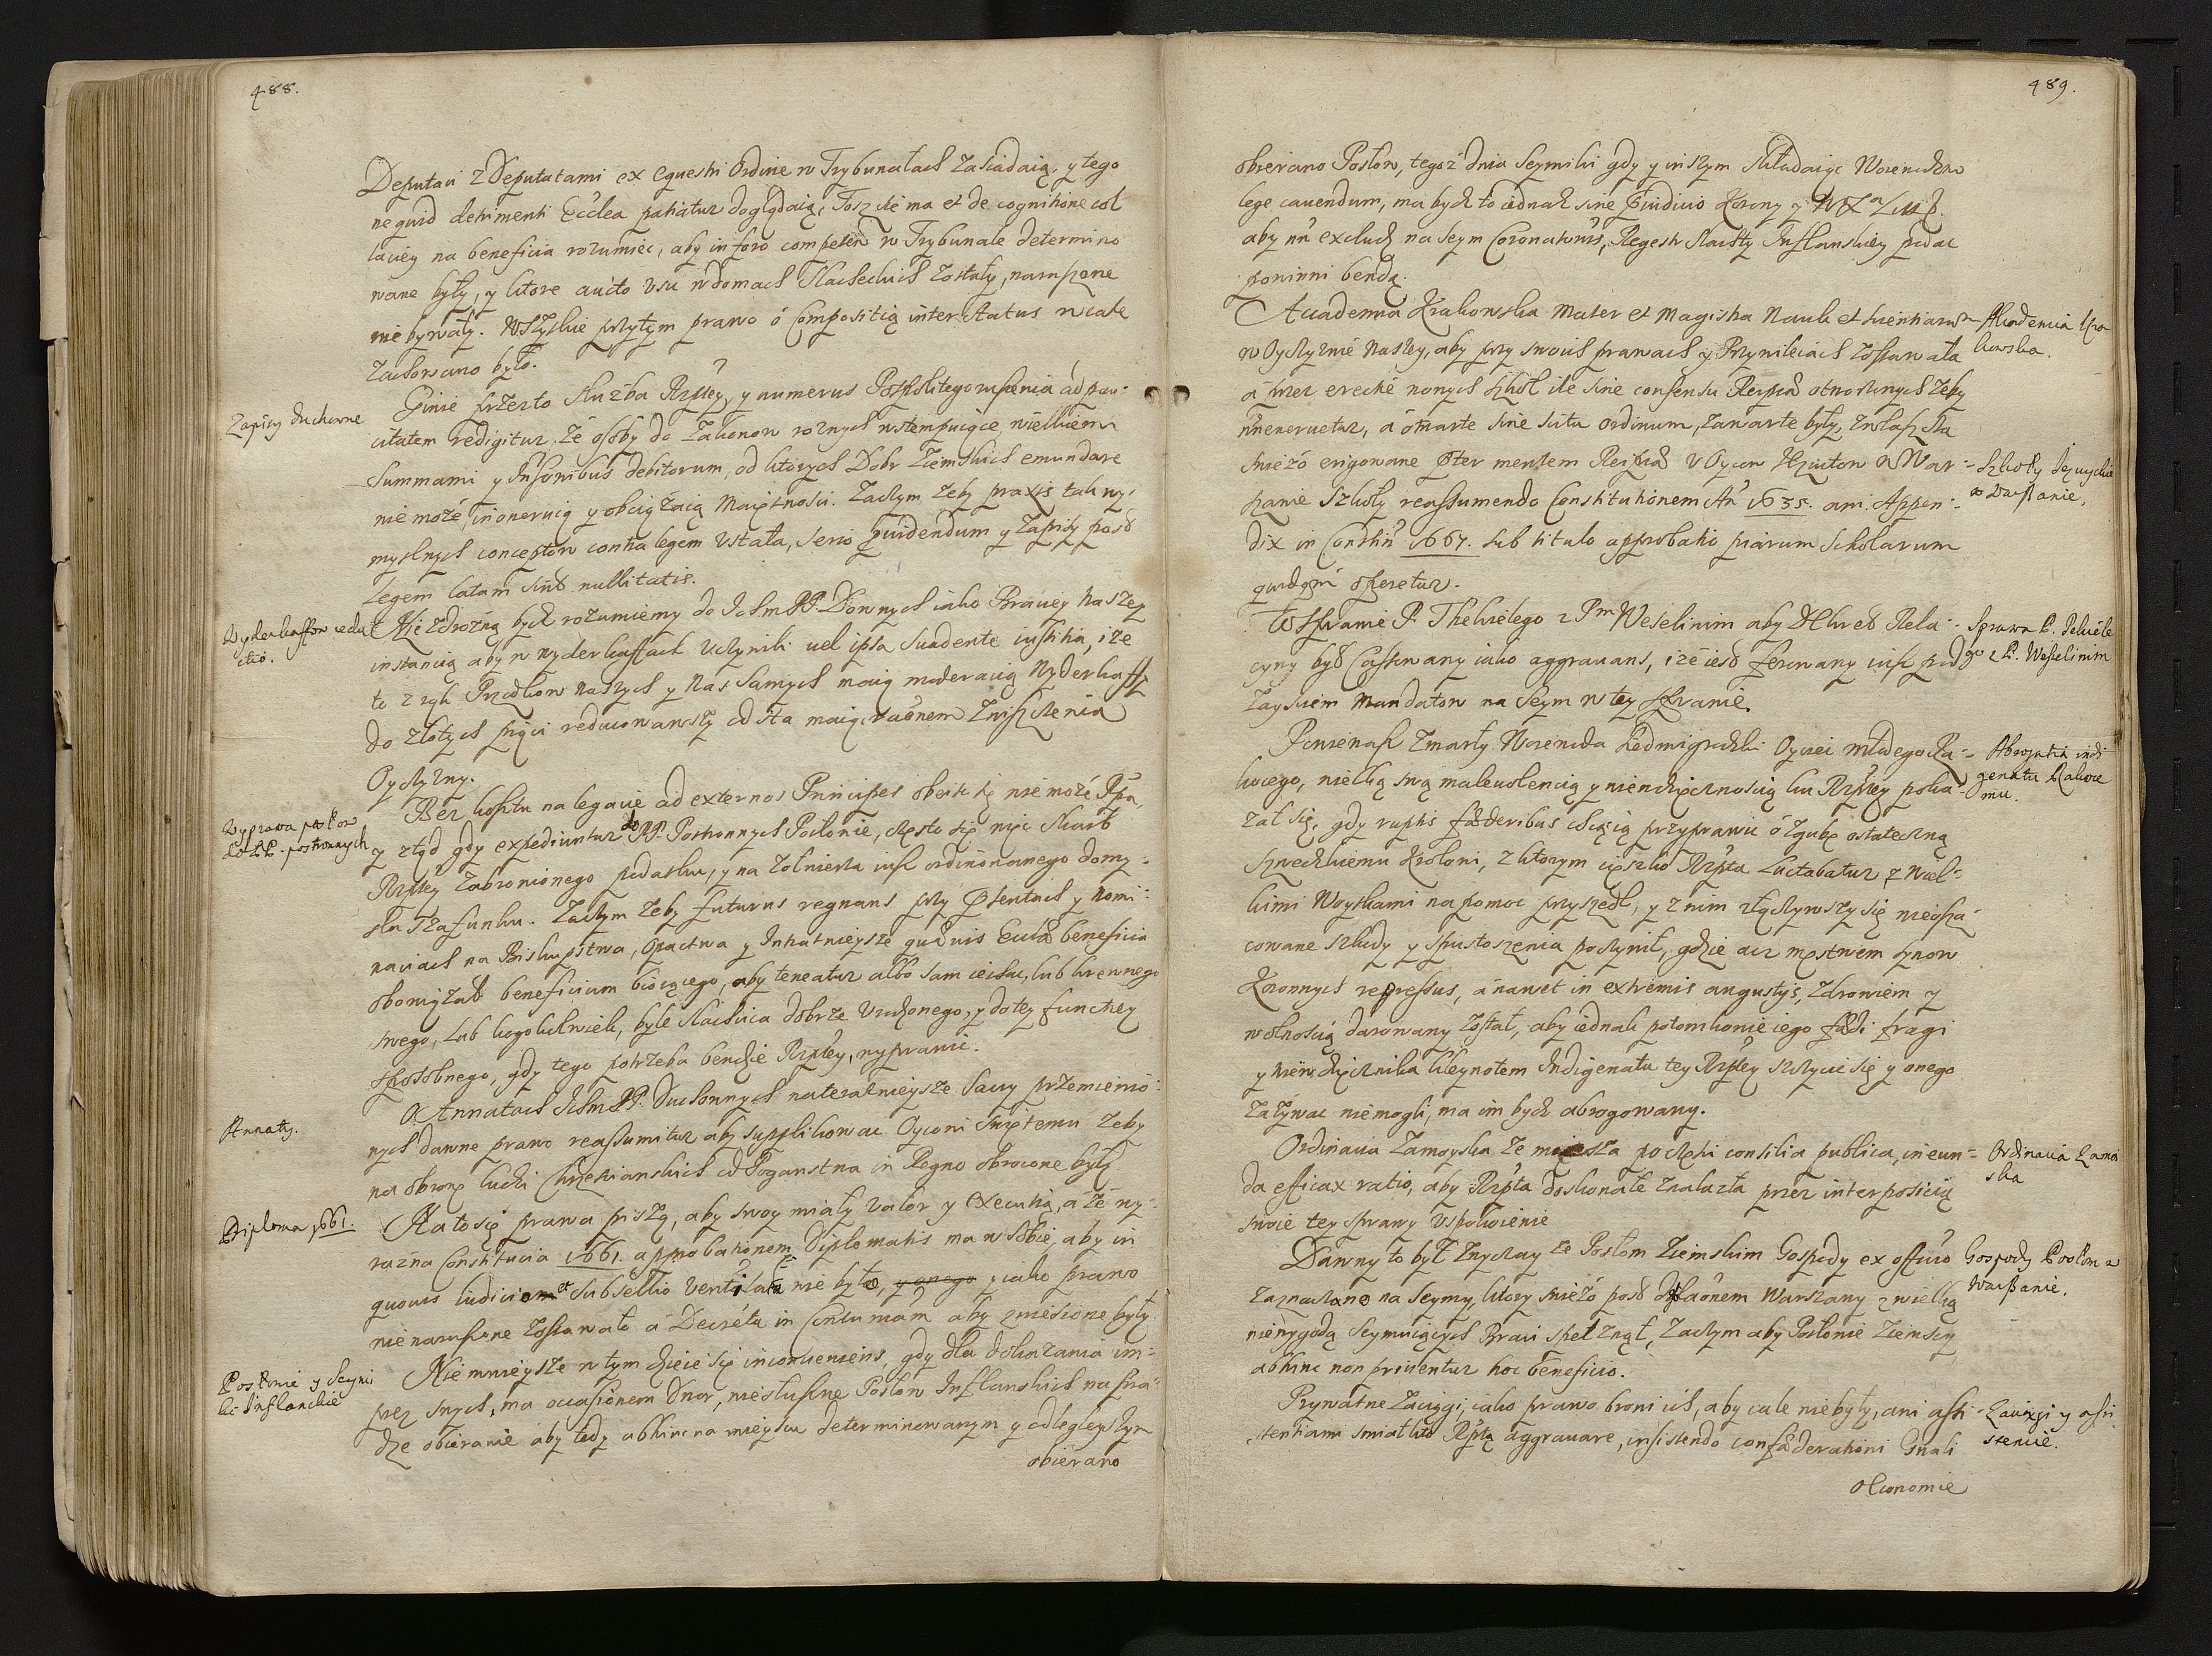 488.
Deputaci z Deputatami ex equestri Ordine w Trybunałach zasiadaią, y tego
ne quid detrimenti Eccłea patiatur doglądaią, Tosz się ma et de cognitione col
laciey na beneficia rozumiec, aby in foro competen w Trybunale determino
wane były, y ktore aucto usu w domach Slacheckich zostały, naruszone
nie bywały. Wszyskie przytym prawo o Compositią inter status wcale
zachowano było.
Zapisy duchowne
Ginie przezto służba Rzptey, y numerus Pospolitego ruszenia ad pau-
citatem redigitur. że osoby do Zakonow roznych wstempuiące wielkiemi
Summami y Insonibus debitorum, od ktorych Dobr Ziemskich emundare
nie może, inoneruią y obciążaią Maiętnosci. Zaczym żeby praxis tak wy-
myslnych conceptow contra legem ustała, serio providendum y zapisy post
Legem latam sint nullitatis.
Wyderkaffow reduc
ctio.
Nie zdrożną bydz rozumiemy do Ichm PP. Downych iako Braciey naszey
instancią aby w wyderkaffach uczynili vel ipsa suadente iustitia, ize
te z rąk Przodkow naszych y nas samych maią moderacią Wyderkaffy
do złotych pięci reducowawszy od sta maią, racionem zniszczenia
Oyczyzny.
Wyprawa posłow
do PP. postronnych
Bez kosztu na legacie ad externos Principes obeisc się nie może Rpta,
y ztąd gdy expediuntur do PP. Postronnych Posłowie, często się więc skarb
Rzptey zabronionego podatku, y na żołnierza iusz ordinowanego domy-
sla szafunku. Zaczym żeby futurus regnans przy Prezentach y nomi-
naciach na Biskupstwa, Opactwa y Intratnieysze quævis Eccła beneficia
obowiązał beneficium biorącego, aby teneatur albo sam iechac, lub krewnego
swego, lub kogokolwiek, byle slachcica dobrze urodzonego, y do tey functiey
sposobnego, gdy tego potrzeba bendzie Rzptey, wyprawic.
Annaty.
O Annatach Ichm PP. Duchownych nateraznieysze czasy przemienio-
nych dawne prawo reassumitur aby supplikowac Oycowi Swiętemu żeby
na obronę ludzi Chrzescianskich od Poganstwa in Regno obrocone były.
Diploma 1661.
Na to się prawa piszą, aby swoy miały valor y execucią, a że wy-
razna Constitucia 1661. approbationem Diplomatis ma w sobie, aby in
quovis iudicio et subsellio ventilatum nie było, y onego y iako prawo
nienaruszone zostawało a Decreta in Contumam aby zniesione były
Posłowie y Seymi
ki Inflanckie
Niemnieysze w tym dzieie się inconveniens, gdy dla dokazania im-
prez swych, ma occasionem Dwor, niesłuszne Posłow Inflanskich naszna-
dze obieranie aby tedy abhinc na mieyscu determinowanym y odlegleyszym
obierano
489.
obierano Posłow, tegoz dnia Seymiki gdy y inszym składaiąc Woiewodztw
lege cavendum, ma bydz to iednak sine præiudicio Korony y WXa Litt.
aby nie excludz na Seym Coronationis, Regestr slachty Inflanskiey podac
powinni bendą.
Accademia Krakowska Mater et Magistra Nauk et scientiarum
w Oyczyznie naszey, aby przy swoich prawach y Przywileiach zostawała
a przez erectie nowych szkoł ile sine consensu Reipca otworzonych żeby
nie eneruetur, a otwarte sine scitu ordinum, zawarte były, zwłaszcza
swiezo erigowane præter mentem Reipca u Oycow Jezuitow w War-
szawie Szkoły reassumendo Constitutionem An 1635. ani Appen-
dix in Constn 1667. sub titulo approbatio piarum scholarum
quidqm operetur.
Akademia Kra
kowska.
Szkoły Jezuyckie
w Warszawie.
W Sprawie P. Thekielego z Pm Weselinim aby Dekret Rela-
cyiny był Cassowany iako aggravans, iże iest ferowany iusz pod
zaysciem Mandatow na Seym w tey sprawie.
Sprawa P. Tekiele
go z P. Weselinim
Poniewasz zmarły Woiewoda Siedmigrodzki Oyciec młodego Ra-
koczego, wielką swą malevolencią y niewdzięcznoscią ku Rzptey poka-
zał się, gdy ruptis fæderibus chcąc ią przyprawic o zgubę ostateczną
Szwedzkiemu Krolowi, z ktorym cięszko Rzpta luctabatur z wiel-
kimi Woyskami na pomoc przyszedł, y z nim złączywszy się nieosza-
cowane szkody y spustoszenia poczynił, gdzie acz męstwem synow
Koronnych repressus, a nawet in extremis angustys, zdrowiem y
wolnoscią darowany został, aby iednak potomkowie iego fædi fragi
y niewdzięcznika kleynotem Indigenatu tey Rzptey szczycic się y onego
zażywac niemogli, ma im bydz abrogowany.
Abrogatia indi
genatu Rakoce
mu.
Ordinacia Zamoyska że miesza po części consilia publica, ineun-
da efficax ratio, aby Rzpta doskonałe znalazła przez interposicią
swoie tey sprawy uspokoienie
Ordinacia Zamoi
ska
Dawny to był zwyczay że Posłom Ziemskim Gospody ex officio
zaznaczano na Seymy, ktory swiezo post desolaonem Warszawy z wielką
niewygodą Seymuiących Braci spełznął, zaczym aby Posłowie Ziemscy
abhinc non priventur hoc beneficio.
Gospody Posłom w
Warszawie.
Prywatne Zaciągi, iako prawo broni ich, aby cale niebyły, ani assi-
stentiami smiał kto Rzptą aggravare, insistendo confæderationi Gnali
Zaciągi y assi
stencie.
Oeconomie